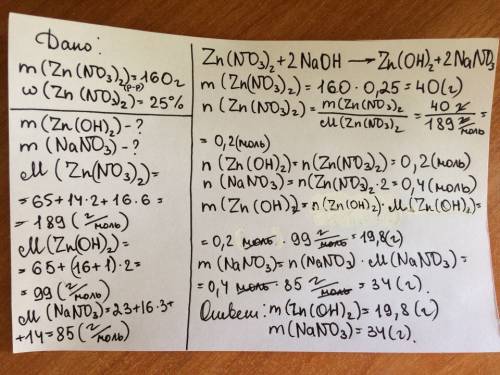 Дано:
m(Zn(NO₃)₂)=160г
(р-р)
w(Zn(NO₃)₂)=25%
m(Zn(OH)₂)-?
m(NaNO₃)-?
M(Zn(NO₃)₂)=
=65+14·2+16·6=
=189(г/моль)
M(Zn(OH)₂)=
=65+(16+1)·2=
=99(г/моль)
M(NaNO₃)=23+16·3+
+14=85(г/моль)
Zn(NO₃)₂+2NaOH→Zn(OH)₂+2NaNO₃
m(Zn(NO₃)₂)=160·0,25=40(г)
n(Zn(NO₃)₂)=m(Zn(NO₃)₂/M(Zn(NO₃)₂=40г/189г/моль=
=0,2(моль)
n(Zn(OH)₂)=n(Zn(NO₃)₂)=0,2(моль)
n(NaNO₃)=n(Zn(NO₃)₂·2=0,4(моль)
m(Zn(OH)₂)=n(Zn(OH)₂)·M(Zn(OH)₂)=
=0,2моль·99г/моль=19,8(г)
m(NaNO₃)=n(NaNO₃)·M(NaNO₃)=
=0,4моль·85г/моль=34(г).
Ответ: m(Zn(OH)₂)=19,8(г)
m(NaNO₃)=34(г).